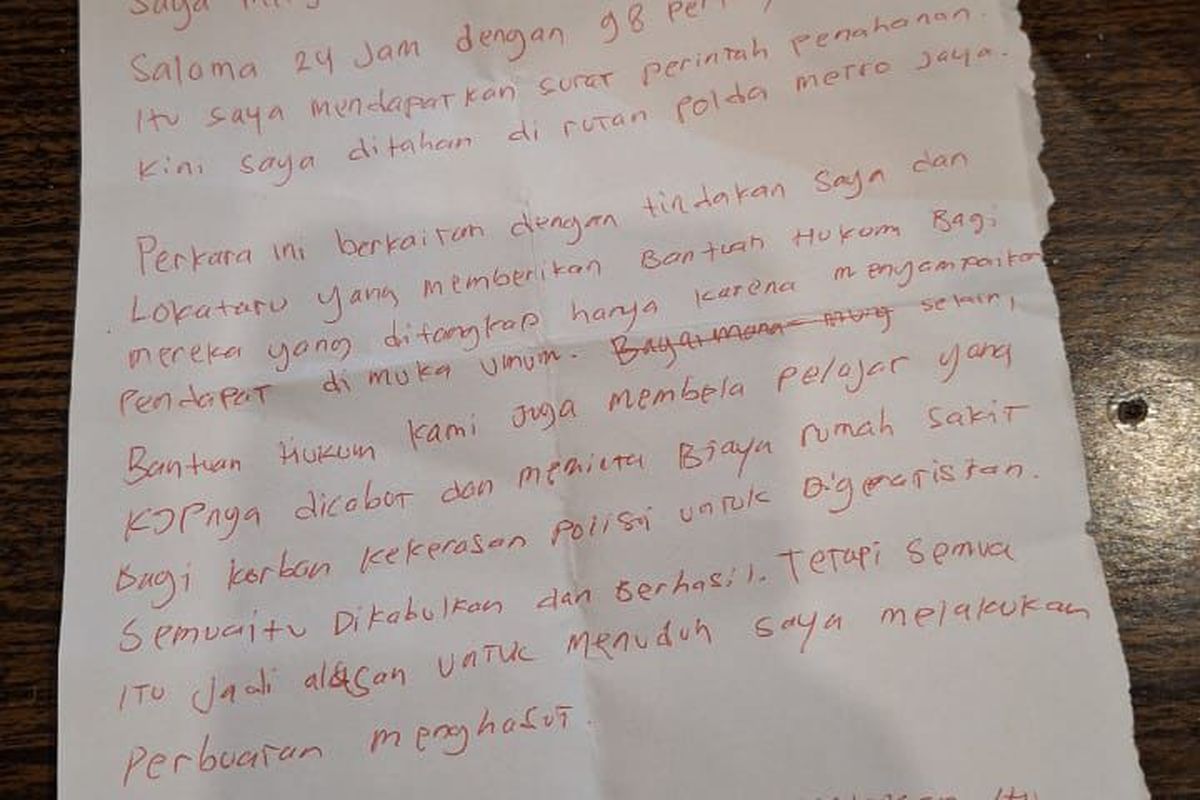 Saya
Saloma 24 Jam dengan 98
Itu saya mendapatkan surat perintah penahanan.
Kini saya ditahan di rutan Polda metro Jaya.
Perkara ini berkaitan dengan tindakan saya dan
Lokataru yang memberikan Bantuan Hukum Bagi
mereka yang ditangkap hanya karena menyampaikan
Pendapat di muka umum. selain,
Bantuan Hukum kami Juga membela pelajar yang
KJPnya dicabut dan meminta Biaya rumah sakit
Bagi korban kekerasan Polisi untuk Digeneristan.
Semuaitu Dikabulkan dan Berhasil. Tetapi Semua
ITU Jadi alasan UNTUK menuduh saya melakukan
Perbuatan menghasut.